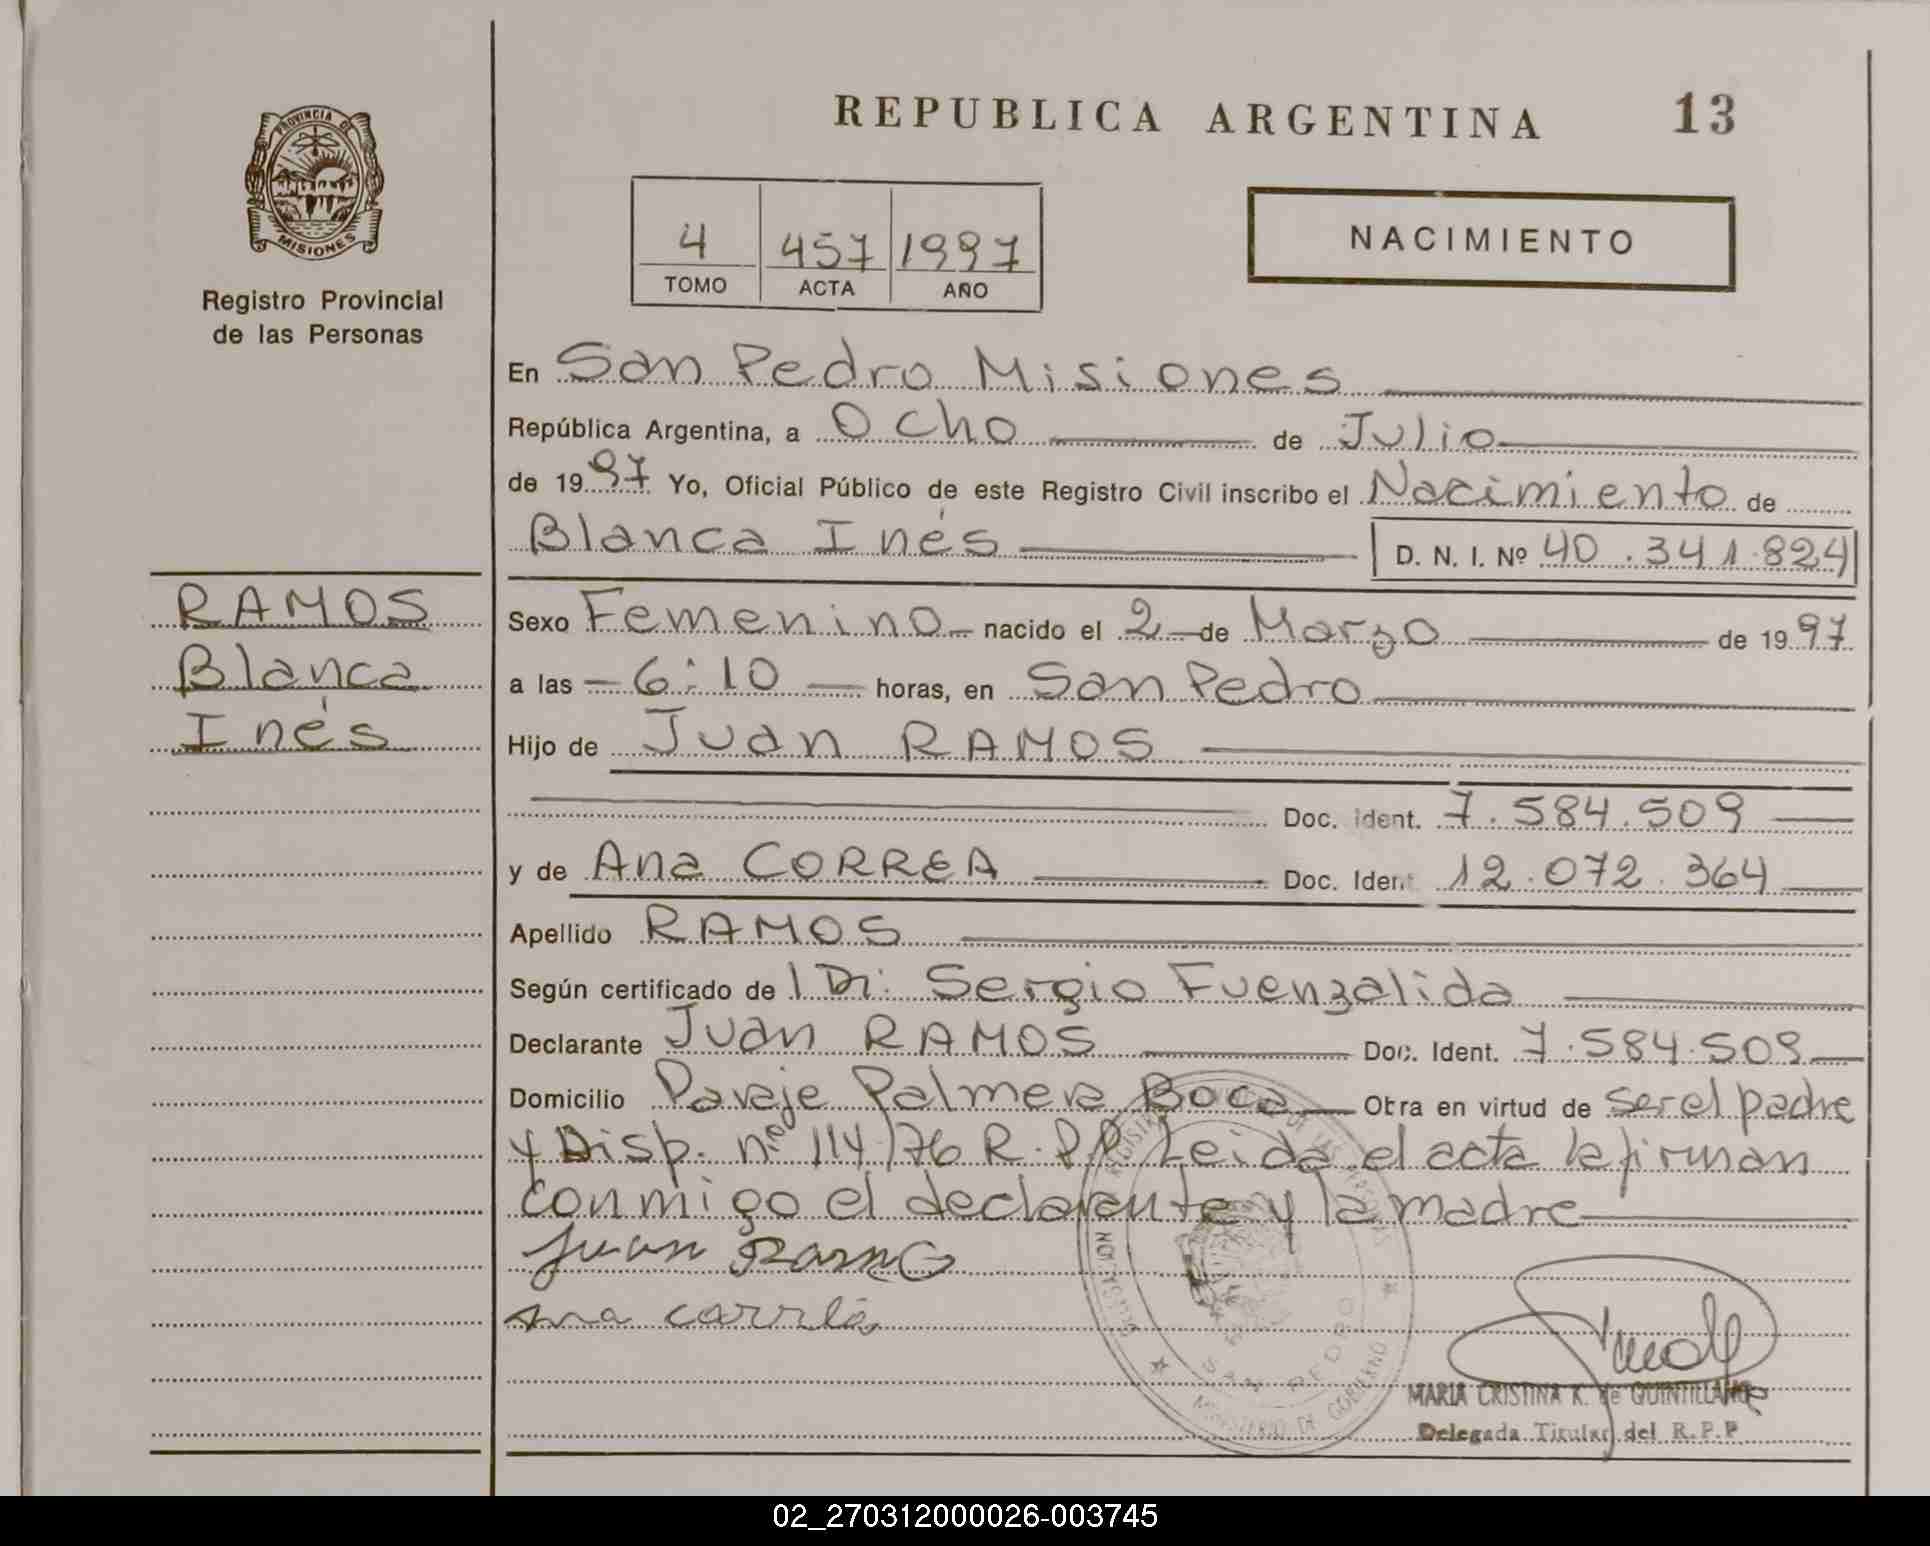 REPUBLICA ARGENTINA 13
PROVINCIA DE
MISIONES
Registro Provincial
de las Personas
4 457 1997
TOMO ACTA AÑO
NACIMIENTO
En San Pedro Misiones
República Argentina, a Ocho de Julio
de 1997 Yo, Oficial Público de este Registro Civil inscribo el Nacimiento de
Blanca Inés D. N. I. Nº 40.341.824
RAMOS
Blanca
Inés
Sexo Femenino nacido el 2 de Marzo de 1997
a las 6:10 horas, en San Pedro
Hijo de Juan RAMOS
Doc. Ident. 7.584.509
y de Ana CORREA Doc. Ident 12.072.364
Apellido RAMOS
Según certificado de l Dr. Sergio Fuenzalida
Declarante Juan RAMOS Doc. Ident. 7.584.509
Domicilio Paraje Palmera Boca Obra en virtud de ser el padre
y Disp. nº 114/76 R.P.P. Leida el acta la firman
conmigo el declarante y la madre
Juan Ramos
ana
SAN PEDRO
MINISTERIO DE GOBIERNO
MARIA CRISTINA K. de QUINTILLANO
Delegada Titular del R.P.P
02_270312000026-003745